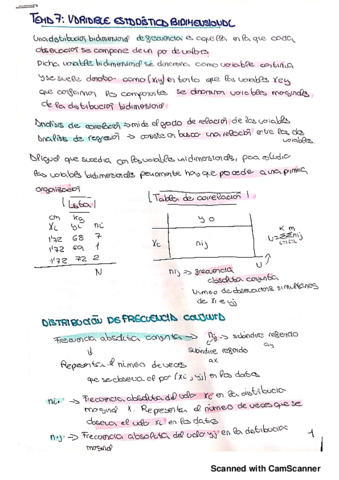 TEMA 7: VARIABLE ESTADÍSTICA BIDIMENSIONAL
Una distribución bidimensional de frecuencia es aquella en la que cada
observación se compone de un par de valores
Dicha variable bidimensional se denomina como variable continua
y se suele denotar como (x,y) en tanto que las variables x e y
que conforman los componentes se denominan variables marginales
de la distribución bidimensional
Análisis de correlación → mide el grado de relación de las variables
Análisis de regresión → consiste en buscar una relación entre las dos
variables
Al igual que sucedía con las variables unidimensionales, para estudiar
las variables bidimensionales previamente hay que proceder a una primera
organización
Lista
Tabla de correlación
cm kg
xi ni
1'72 68 7
1'72 69 1
1'72 72 2
N
nij
nij → frecuencia
absoluta conjunta
Número de observaciones simultáneas
de xi e yj
DISTRIBUCIÓN DE FRECUENCIA CONJUNTA
Frecuencia absoluta conjunta → nij → subíndice referido
a y
subíndice referido
a x
Representa el número de veces
que se observa el par (xi, yj) en los datos
ni. → Frecuencia absoluta del valor xi en la distribución
marginal x. Representa el número de veces que se
observa el valor xi en los datos
n.j → Frecuencia absoluta del valor yj en la distribución
marginal
1
Scanned with CamScanner